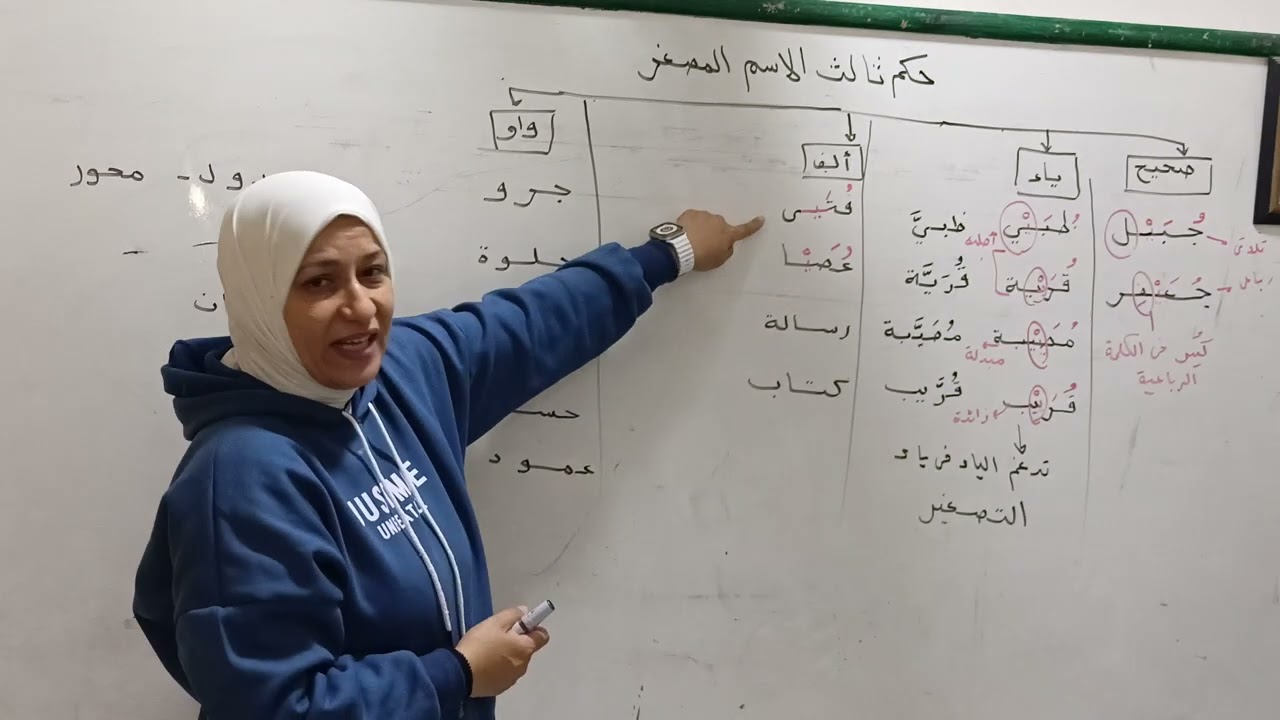 حكم ثالث الاسم المصغر
صحيح
ياء
ألف
واو
جُبَيْل
ثلاثي
جُعَيْفِر
رباعي
كُسِر في الكلمة
الرباعية
ظُبَيْي
ظبيَّ
أصلية
قُرَيْية
قُرَيَّة
مُصَيْيبة
مُصَيَّبة
مبدلة
قُرَيْيب
قُرَيِّب
زائدة
تدغم الياء في ياء
التصغير
فُتَيـى
عُصَيْا
رسالة
كتاب
جرو
حلوة
حسـ
عمود
ـرول - محور
ـان
JUST ME